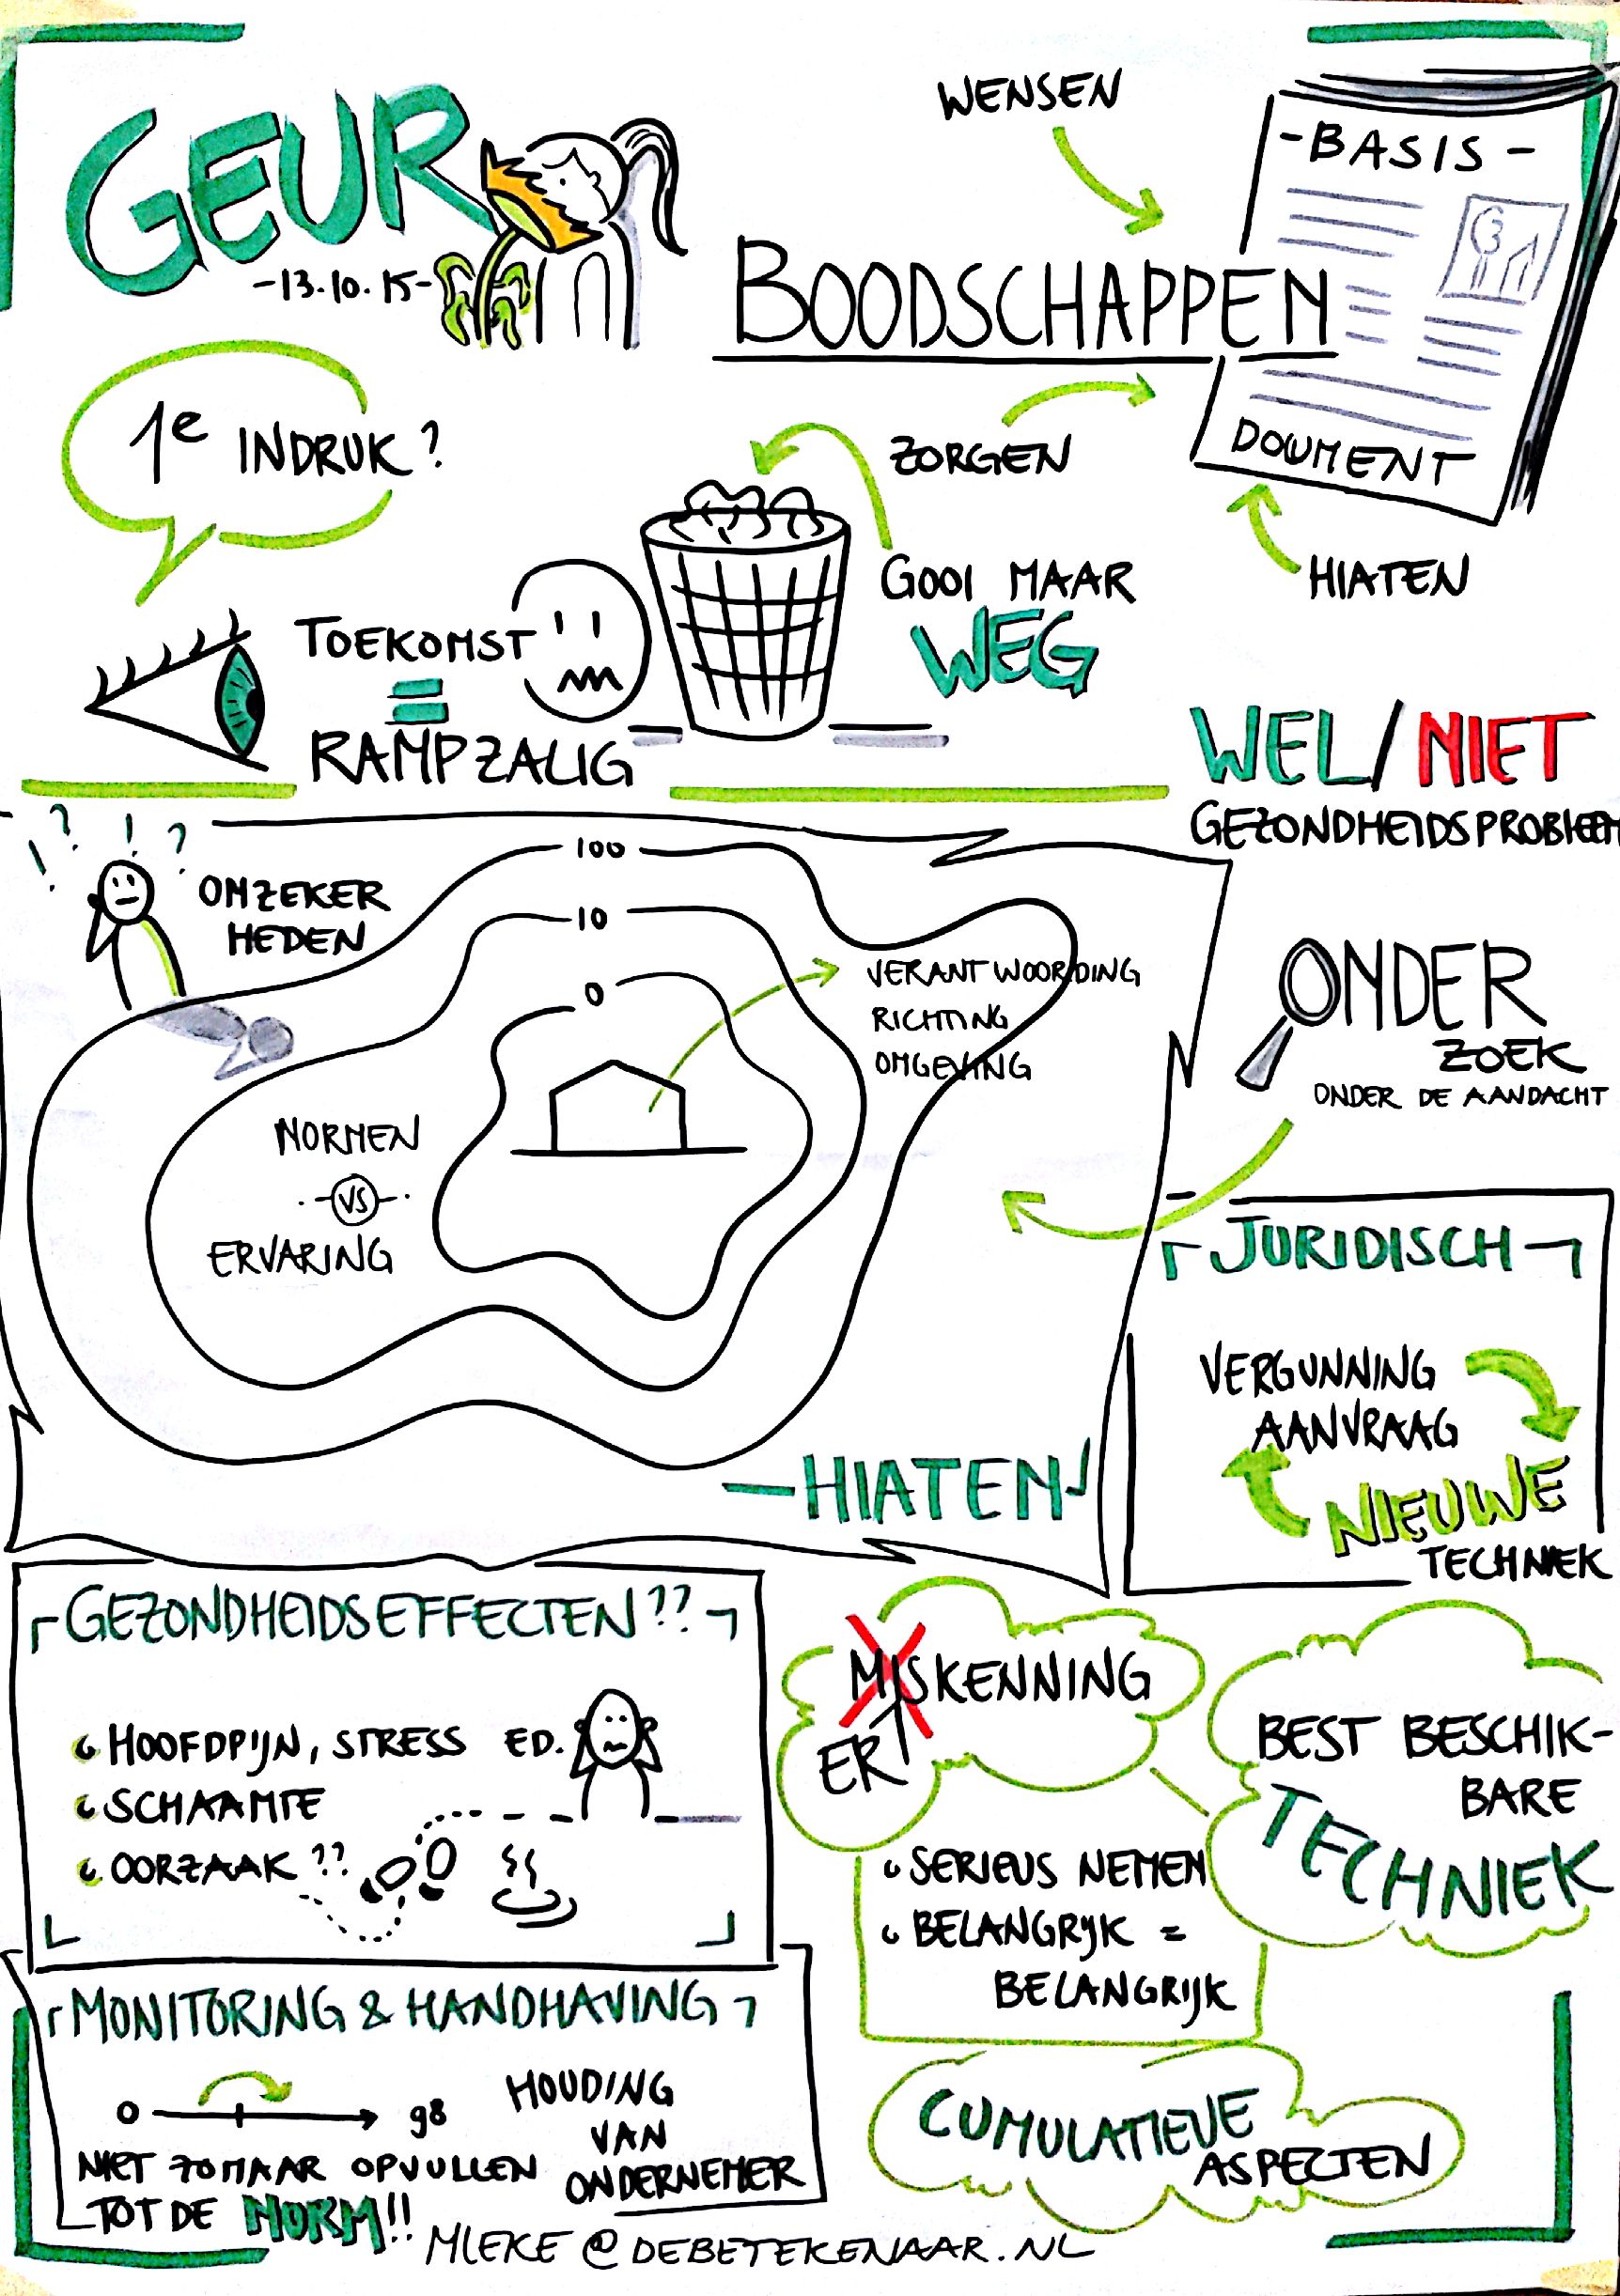 GEUR
-13.10.15-
WENSEN
-BASIS-
BOODSCHAPPEN
DOCUMENT
1e INDRUK?
ZORGEN
HIATEN
GOOI MAAR
WEG
TOEKOMST
=
RAMPZALIG
WEL/NIET
GEZONDHEIDSPROBLEEM
! ? ! ?
ONZEKER
HEDEN
100
10
0
VERANTWOORDING
RICHTING
OMGEVING
NORMEN
VS
ERVARING
HIATEN
ONDER
ZOEK
ONDER DE AANDACHT
JURIDISCH
VERGUNNING
AANVRAAG
NIEUWE
TECHNIEK
GEZONDHEIDSEFFECTEN??
HOOFDPIJN, STRESS ED.
SCHAAMTE
OORZAAK??
MISKENNING
ER
SERIEUS NEMEN
BELANGRIJK =
BELANGRIJK
BEST BESCHIK-
BARE
TECHNIEK
MONITORING & HANDHAVING
0 98
NIET ZOMAAR OPVULLEN
TOT DE NORM!!
HOUDING
VAN
ONDERNEMER
CUMULATIEVE
ASPECTEN
MIEKE@DEBETEKENAAR.NL